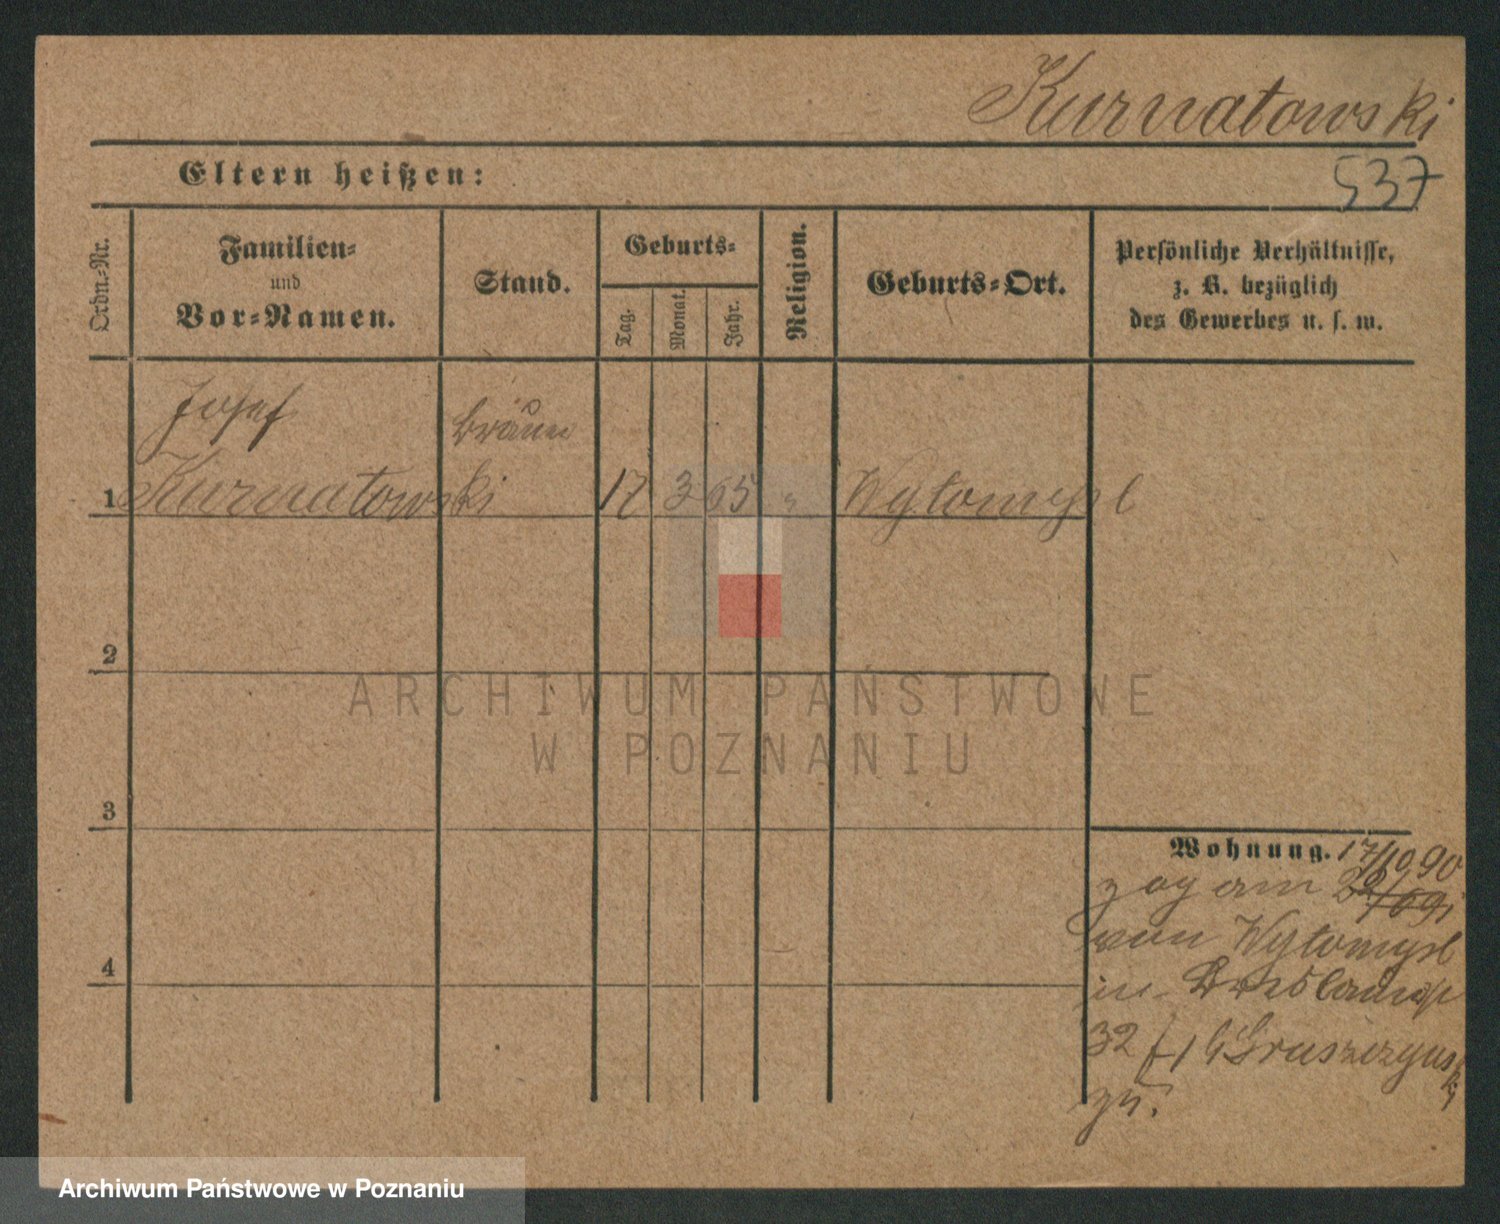 Kurnatowski
Eltern heißen:
537
Ordn.-Nr.
Familien-
und
Vor-Namen.
Stand.
Geburts-
Tag.
Monat.
Jahr.
Religion.
Geburts-Ort.
Persönliche Verhältnisse,
z. B. bezüglich
des Gewerbes u. s. w.
Josef
1 Kurnatowski 17 3 65 " Wytomysl
2
ARCHIWUM PAŃSTWOWE
W POZNANIU
3
Wohnung. 17/10 90
zog am
von Wytomysl
in
32 Gruszczynski
zu.
4
Archiwum Państwowe w Poznaniu